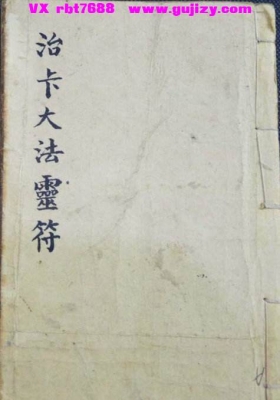 VX rbt7688 www.gujizy.com
治卡大法靈符